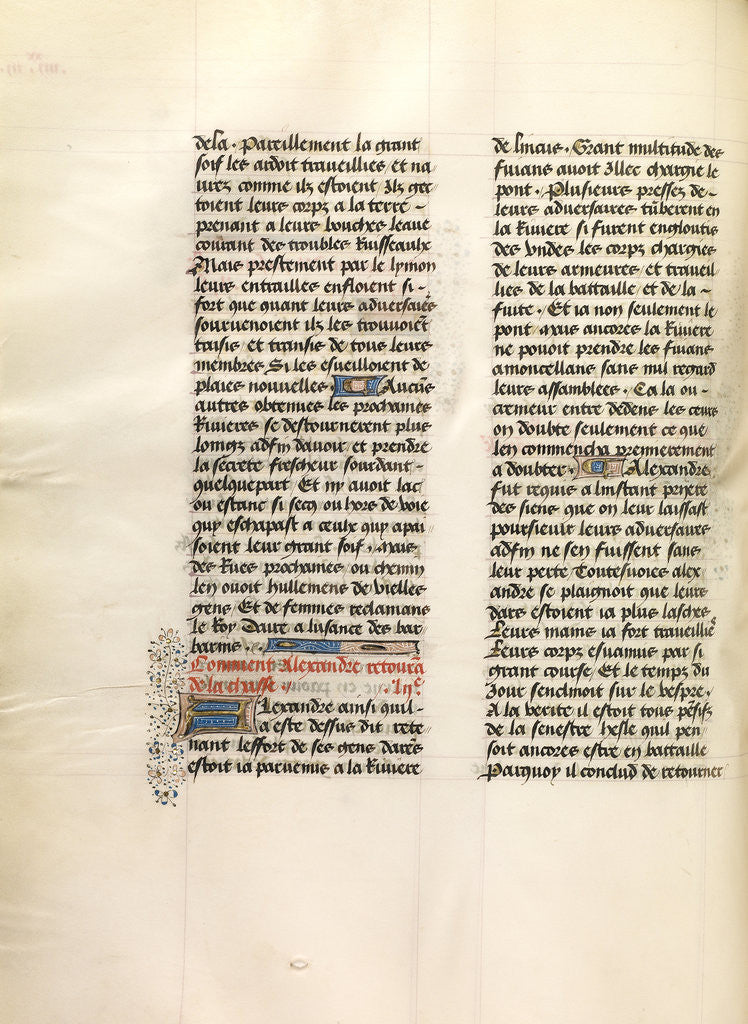 dela. Pareillement la grant
soif les ardoit traveillies / et na
urez comme ilz estoient / Ilz get
toient leurs corpz a la terre –
prenant a leurs bouches leaue
courant des troubles Ruisseaulx
Mais prestement par le lymon
leurs entrailles enfloient si –
fort que quant leurs adversaires
sourvenoient ilz les trouvoient
transis / et transis de tous leurs
membres Si les esveilloient de
plaies nouvelles. Aucuns
autres obtenues les prochaines
Rivieres se destournerent plus
loingz adfin davoir / et prendre
la secrete frescheur sourdant –
quelquepart / Et ny avoit lac
ou estanc si secq ou hors de voie
quy eschapast a ceulx quy apai
soient leur grant soif. Mais
des Rues prochaines / ou chemin
len ouoit hullemens de vielles
gens / Et de femmes reclamans
le Roy Daire a lusance des bar
barins.
Comment Alexandre retourna
de la chasse.
Alexandre ainsi quil –
a este dessus dit rete
nant leffort de ses gens Dares
estoit ia parvenus a la Riviere
de lincus. Grant multitude des
fuians avoit Illec chargie le
pont. Plusieurs pressez de –
leurs adversaires tumberent en
la Riviere si furent engloutis
des undes les corpz chargies
de leurs armeures / et traveil
lies de la battaille / et de la –
fuite. Et ia non seulement le
pont / Mais ancores la Riviere
ne povoit prendre les fuians
amoncellans sans nul regard
leurs assamblees. Ca la ou –
cremeur entre dedens les ceurs
on doubte seulement ce que
len commencha premierement
a doubter. Alexandre
fut requis a linstant pryere
des siens que on leur laissast
poursievir leurs adversaires
adfin ne sen fuissent sans
leur perte / Toutesvoies alex
andre se plaignoit que leurs
dars estoient ia plus lasches
Leurs mains ia fort traveillies
Leurs corpz esvanuis par si
grant course / Et le tempz du
Jour senclinoit sur le vespre.
A la verite il estoit tous pensifz
de la senestre hesle quil pen
soit ancores estre en battaille
Parquoy il conclud de retourner